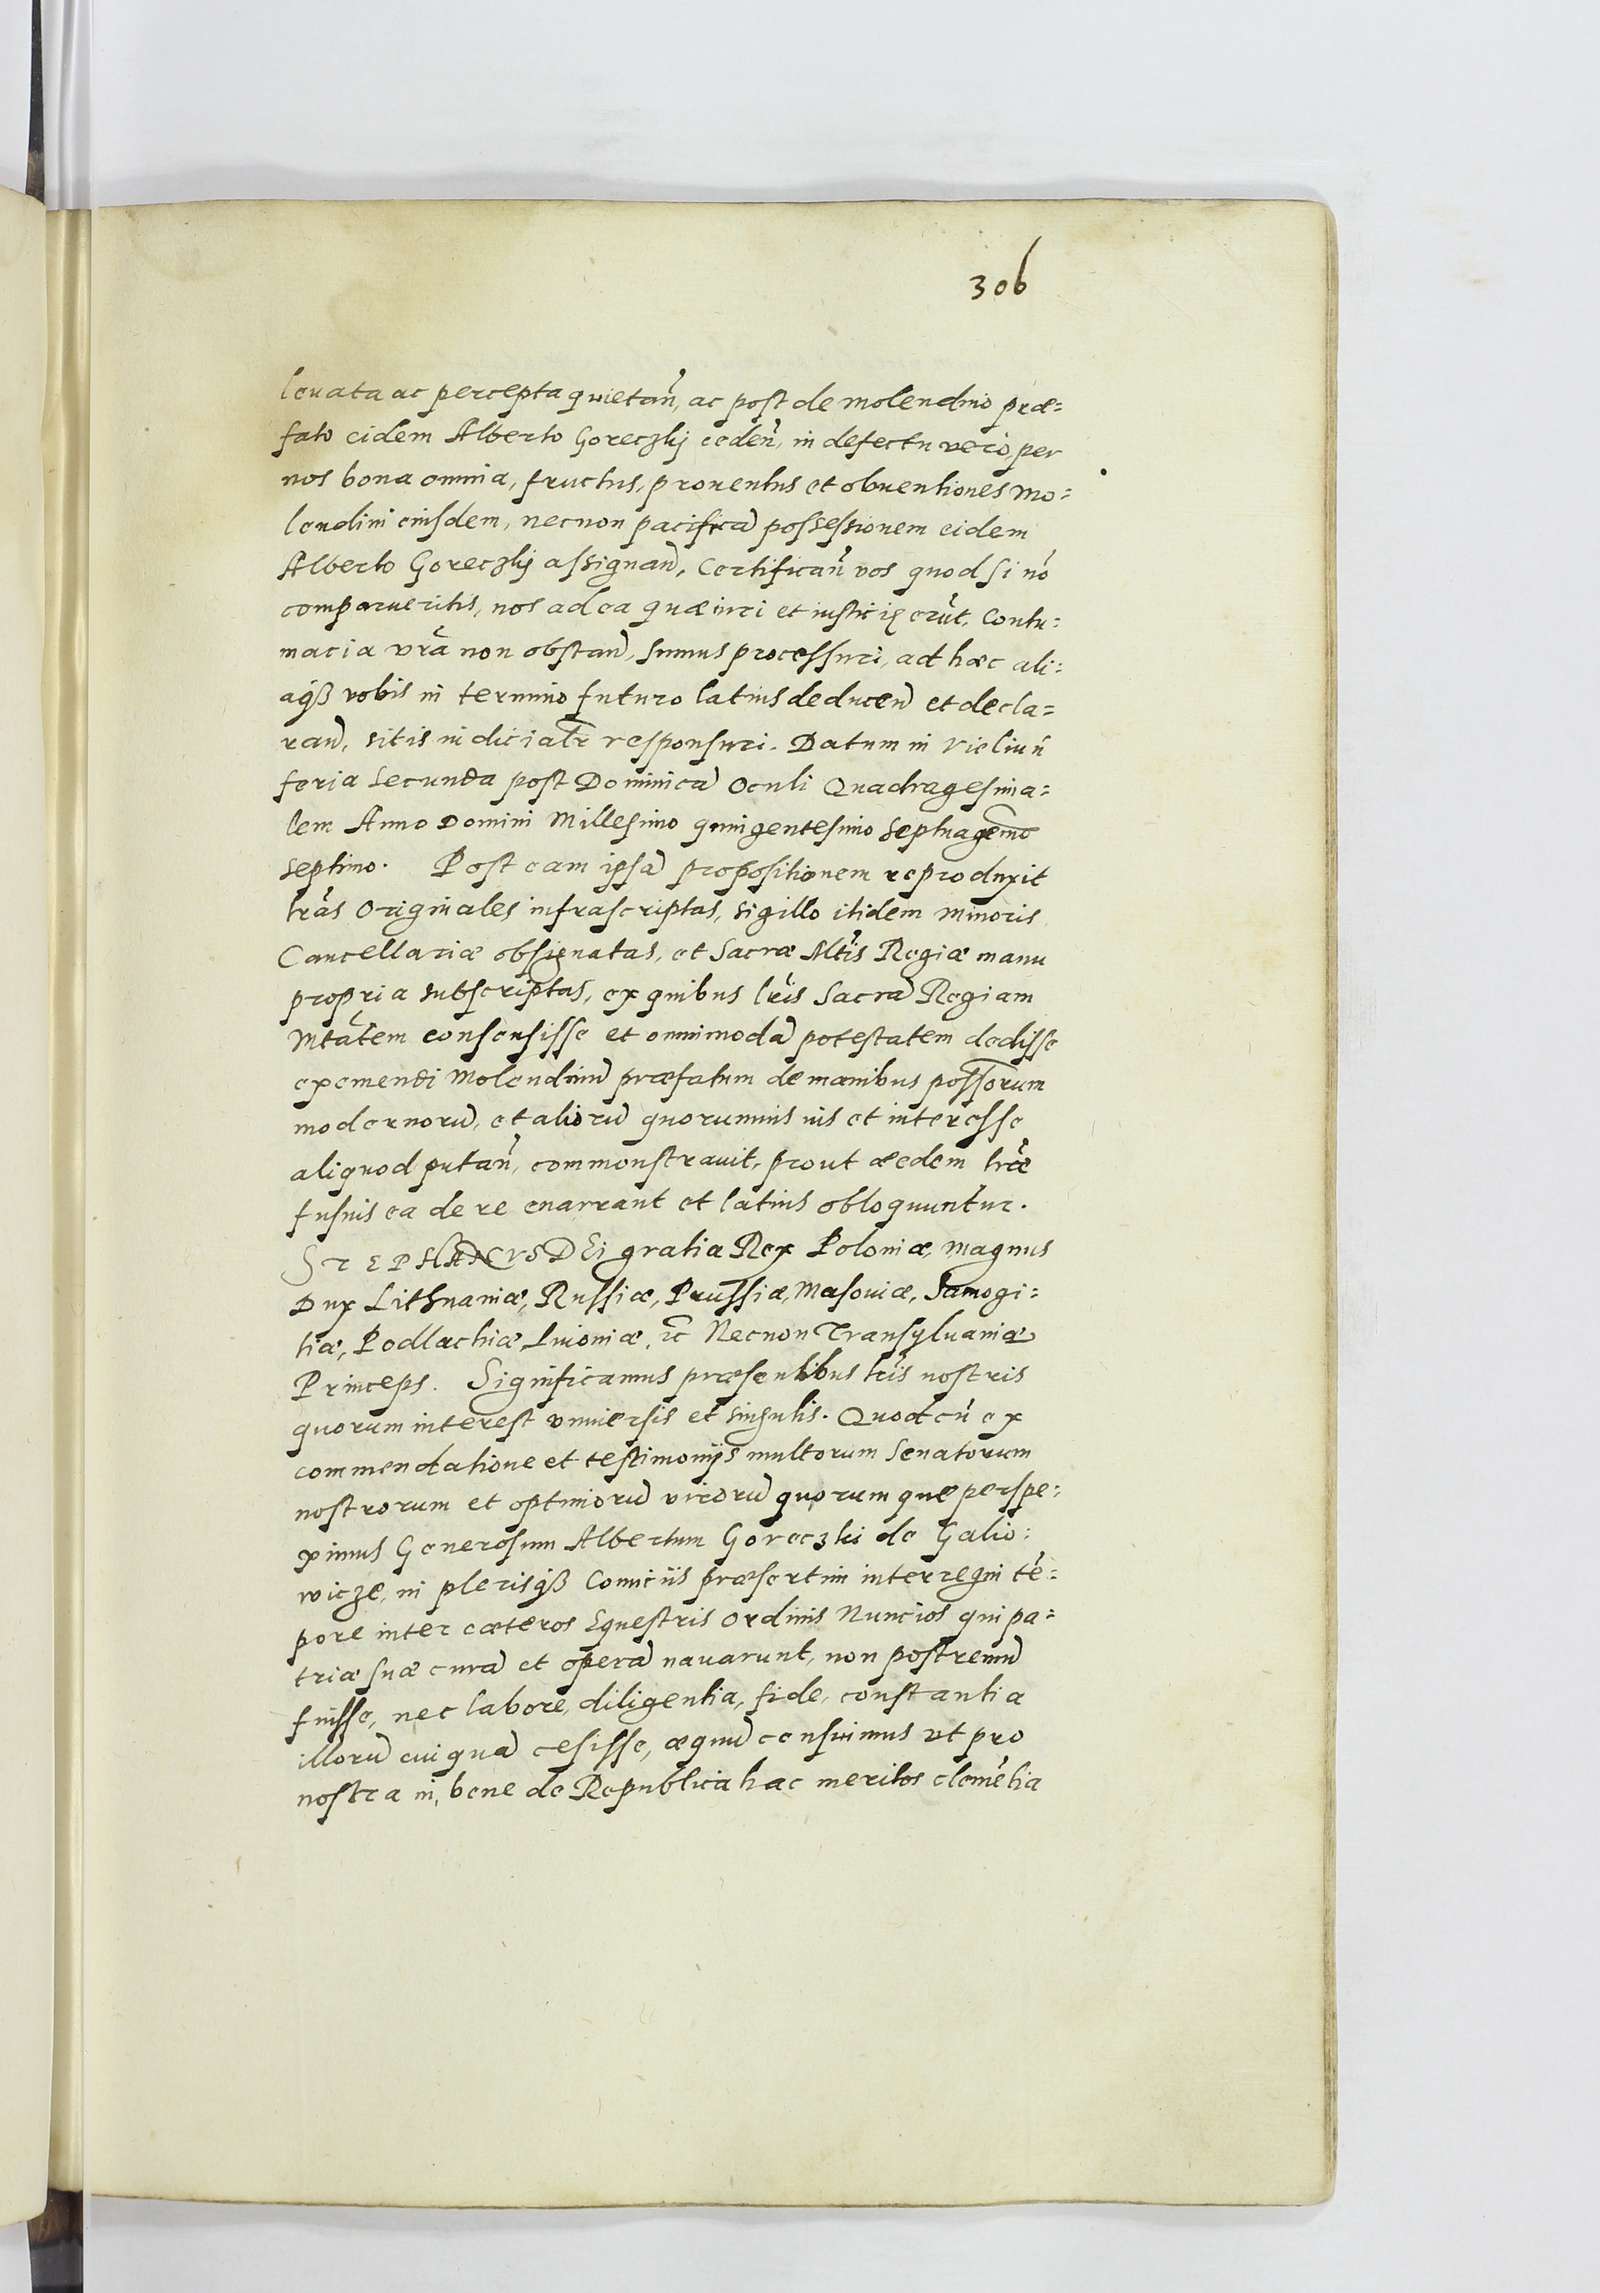 306
leuata ac percepta quietan̄, ac post de molendino præ=
fato eidem Alberto Goreczkij ceden̄, in defectu verò, per
nos bona omnia, fructus, prouentus et obuentiones mo=
lendini eiusdem, necnon pacificā possessionem eidem
Alberto Goreczkij assignan̄, Certifican̄ vos quod si nō
comparueritis, nos ad ea quæ iuri et iusticię erūt, Contu=
macia vrā non obstan̄, sumus processuri, ad hæc ali=
aqȝ vobis in termino futuro latius deducen̄ et decla=
ran̄, sitis iudicialr̄ responsuri. Datum in Vieliun̄
feria secunda post Dominicā Oculi Quadragesima=
lem Anno Domini Millesimo quingentesimo Septuagem̄o
septimo. Post eam ipsā propositionem reproduxit
lrās Originales infrascriptas, sigillo itidem minoris
Cancellariæ obsignatas, et Sacræ Mtīs Regiæ manu
propria subscriptas, ex quibus lrīs Sacrā Regiam
Mtātem consensisse et omnimodā potestatem dedisse
exemendi Molendinū præfatum de manibus poss̄orum
modernorū, et aliorū quorumuis ius et interesse
aliquod putan̄, commonstrauit, prout æedem lrǣ
fusius ea de re enarrant et latius obloquuntur.
STEPHANVS DEi gratia Rex Poloniæ, Magnus
Dux Lithuaniæ, Russiæ, Prussiæ, Masouiæ, Samogi=
tiæ, Podlachiæ, Liuoniæ, ꝛc̄ Necnon Transyluaniæ
Princeps. Significamus præsentibus lrīs nostris
quorum interest vniuersis et singulis. Quod cū ex
commendatione et testimonijs multorum Senatorum
nostrorum et optimorū virorū quorumque perspe=
ximus Generosum Albertum Goreczki de Galio=
wicze, in plerisqȝ Comiciis præsertim interregni tē=
pore inter cæteros Equestris Ordinis Nuncios qui pa=
triæ suæ curā et operā nauarunt, non postremū
fuisse, nec labore, diligentia, fide, constantia
illorū cuiquā cesisse, æquū censuimus vt pro
nostra in bene de Republica hac meritos clemētia